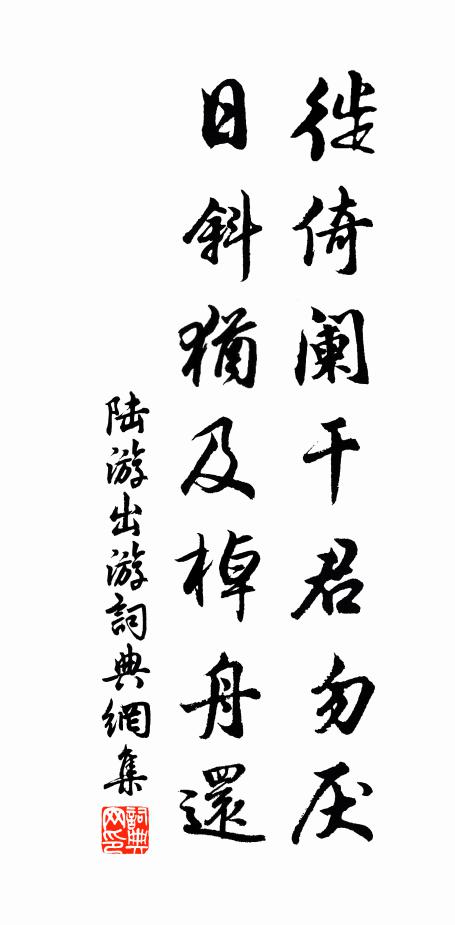 徙倚阑干君勿厌
日斜猶及棹舟還
陆游出游詞典網集
詞典网印